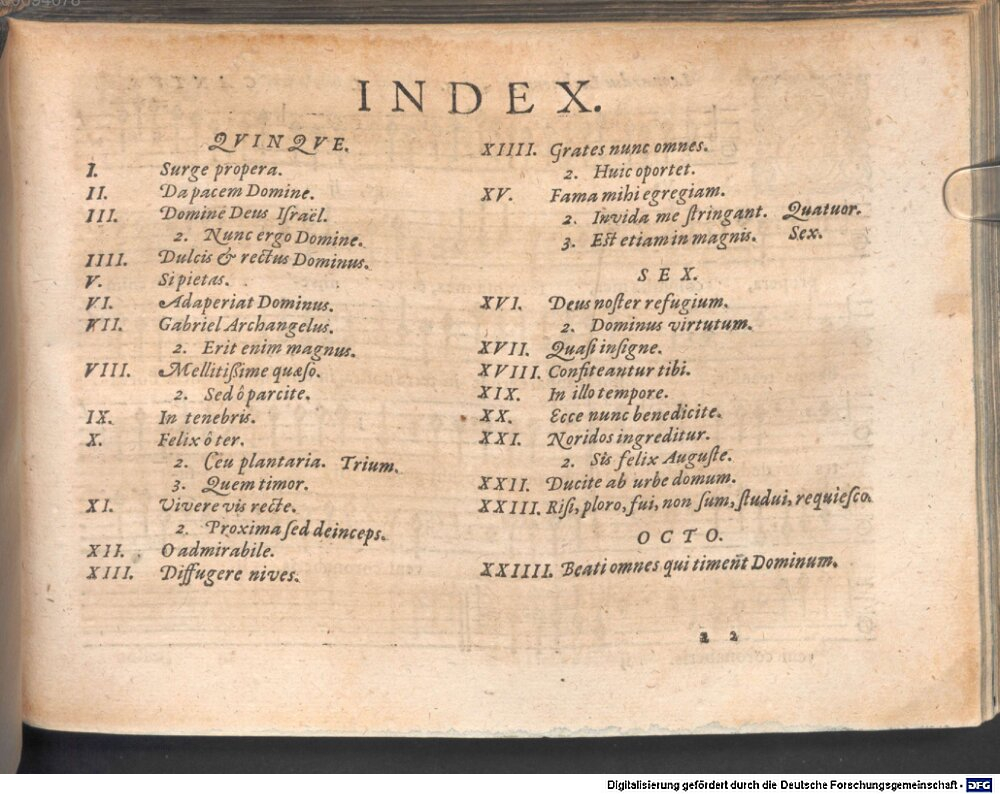 INDEX.
QVINQVE.
I. Surge propera.
II. Da pacem Domine.
III. Domine Deus Iſraël.
2. Nunc ergo Domine.
IIII. Dulcis & rectus Dominus.
V. Si pietas.
VI. Adaperiat Dominus.
VII. Gabriel Archangelus.
2. Erit enim magnus.
VIII. Mellitißime quæſo.
2. Sed ô parcite.
IX. In tenebris.
X. Felix ô ter.
2. Ceu plantaria. Trium.
3. Quem timor.
XI. Vivere vis recte.
2. Proxima ſed deinceps.
XII. O admirabile.
XIII. Diffugere nives.
XIIII. Grates nunc omnes.
2. Huic oportet.
XV. Fama mihi egregiam.
2. Invida me ſtringant. Quatuor.
3. Eſt etiam in magnis. Sex.
SEX.
XVI. Deus noſter refugium.
2. Dominus virtutum.
XVII. Quaſi inſigne.
XVIII. Confiteantur tibi.
XIX. In illo tempore.
XX. Ecce nunc benedicite.
XXI. Noridos ingreditur.
2. Sis felix Auguſte.
XXII. Ducite ab urbe domum.
XXIII. Riſi, ploro, fui, non ſum, ſtudui, requieſco.
OCTO.
XXIIII. Beati omnes qui timent Dominum.
2
Digitalisierung gefördert durch die Deutsche Forschungsgemeinschaft - DFG